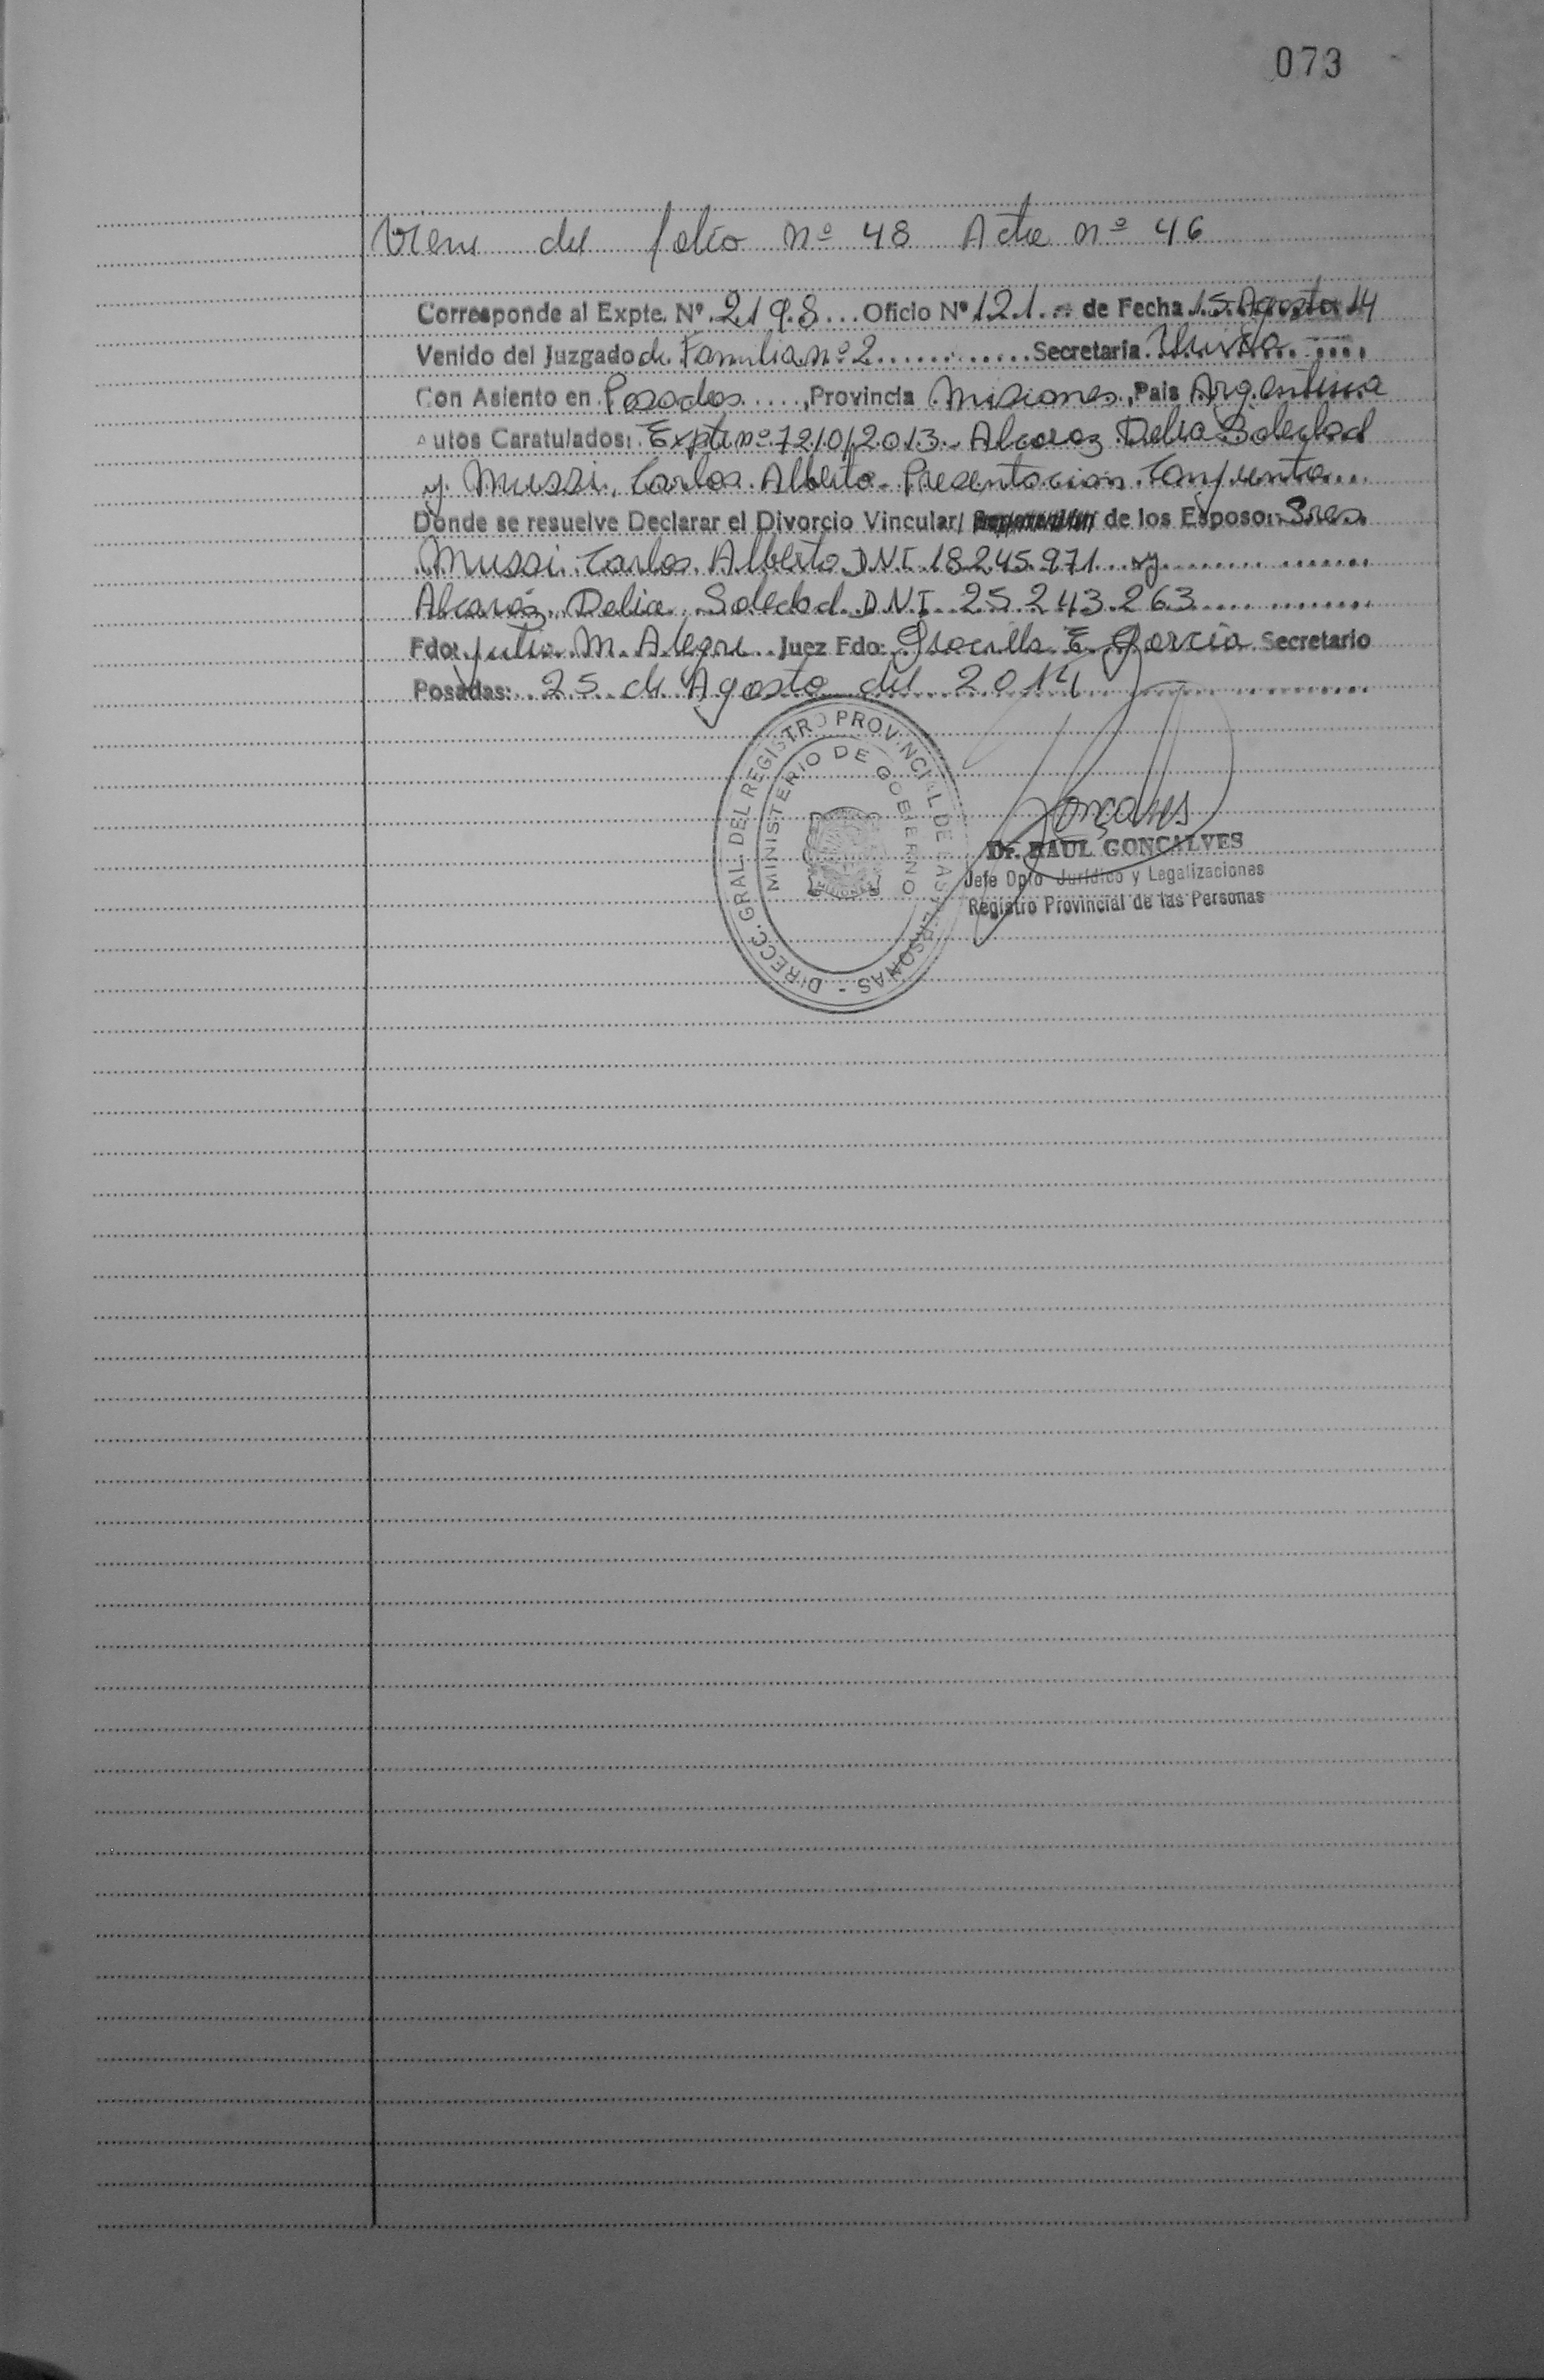 073
Viene del folio nº 48 Acta nº 46
Corresponde al Expte. Nº 2198 Oficio Nº 121 de Fecha 15 Agosto 14
Venido del Juzgado de Familia nº 2 Secretaria
Con Asiento en Posadas, Provincia Misiones, Pais Argentina
Autos Caratulados: Expte nº 7210/2013 - Alcaraz Delia Soledad
y Mussi, Carlos Alberto - Presentacion Conjunta
Donde se resuelve Declarar el Divorcio Vincular/ de los Esposo: Sres.
Mussi Carlos Alberto DNI 18.245.971 y
Alcaráz Delia Soledad DNI 25.243.263
Fdo: Julio M. Alegre Juez Fdo: Graciella E. García Secretario
Posadas: 25 de Agosto del 2014
DIRECC. GRAL. DEL REGISTRO PROVINCIAL DE LAS PERSONAS -
MINISTERIO DE GOBIERNO
MISIONES
Gonçalves
Dr. RAUL GONÇALVES
Jefe Dpto Jurídico y Legalizaciones
Registro Provincial de las Personas